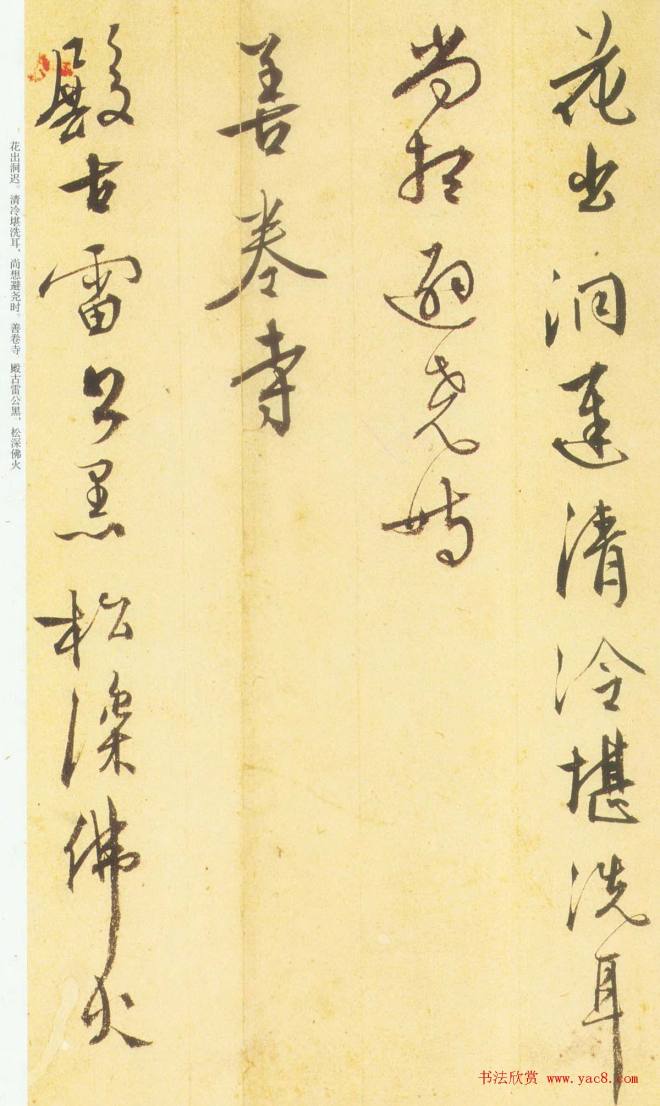 花出洞遲清冷堪洗耳
尚想避堯時
善卷寺
殿古雷公黑松深佛火
花出洞迟。清冷堪洗耳，尚想避尧时。善卷寺　殿古雷公黑，松深佛火
书法欣赏 www.yac8.com